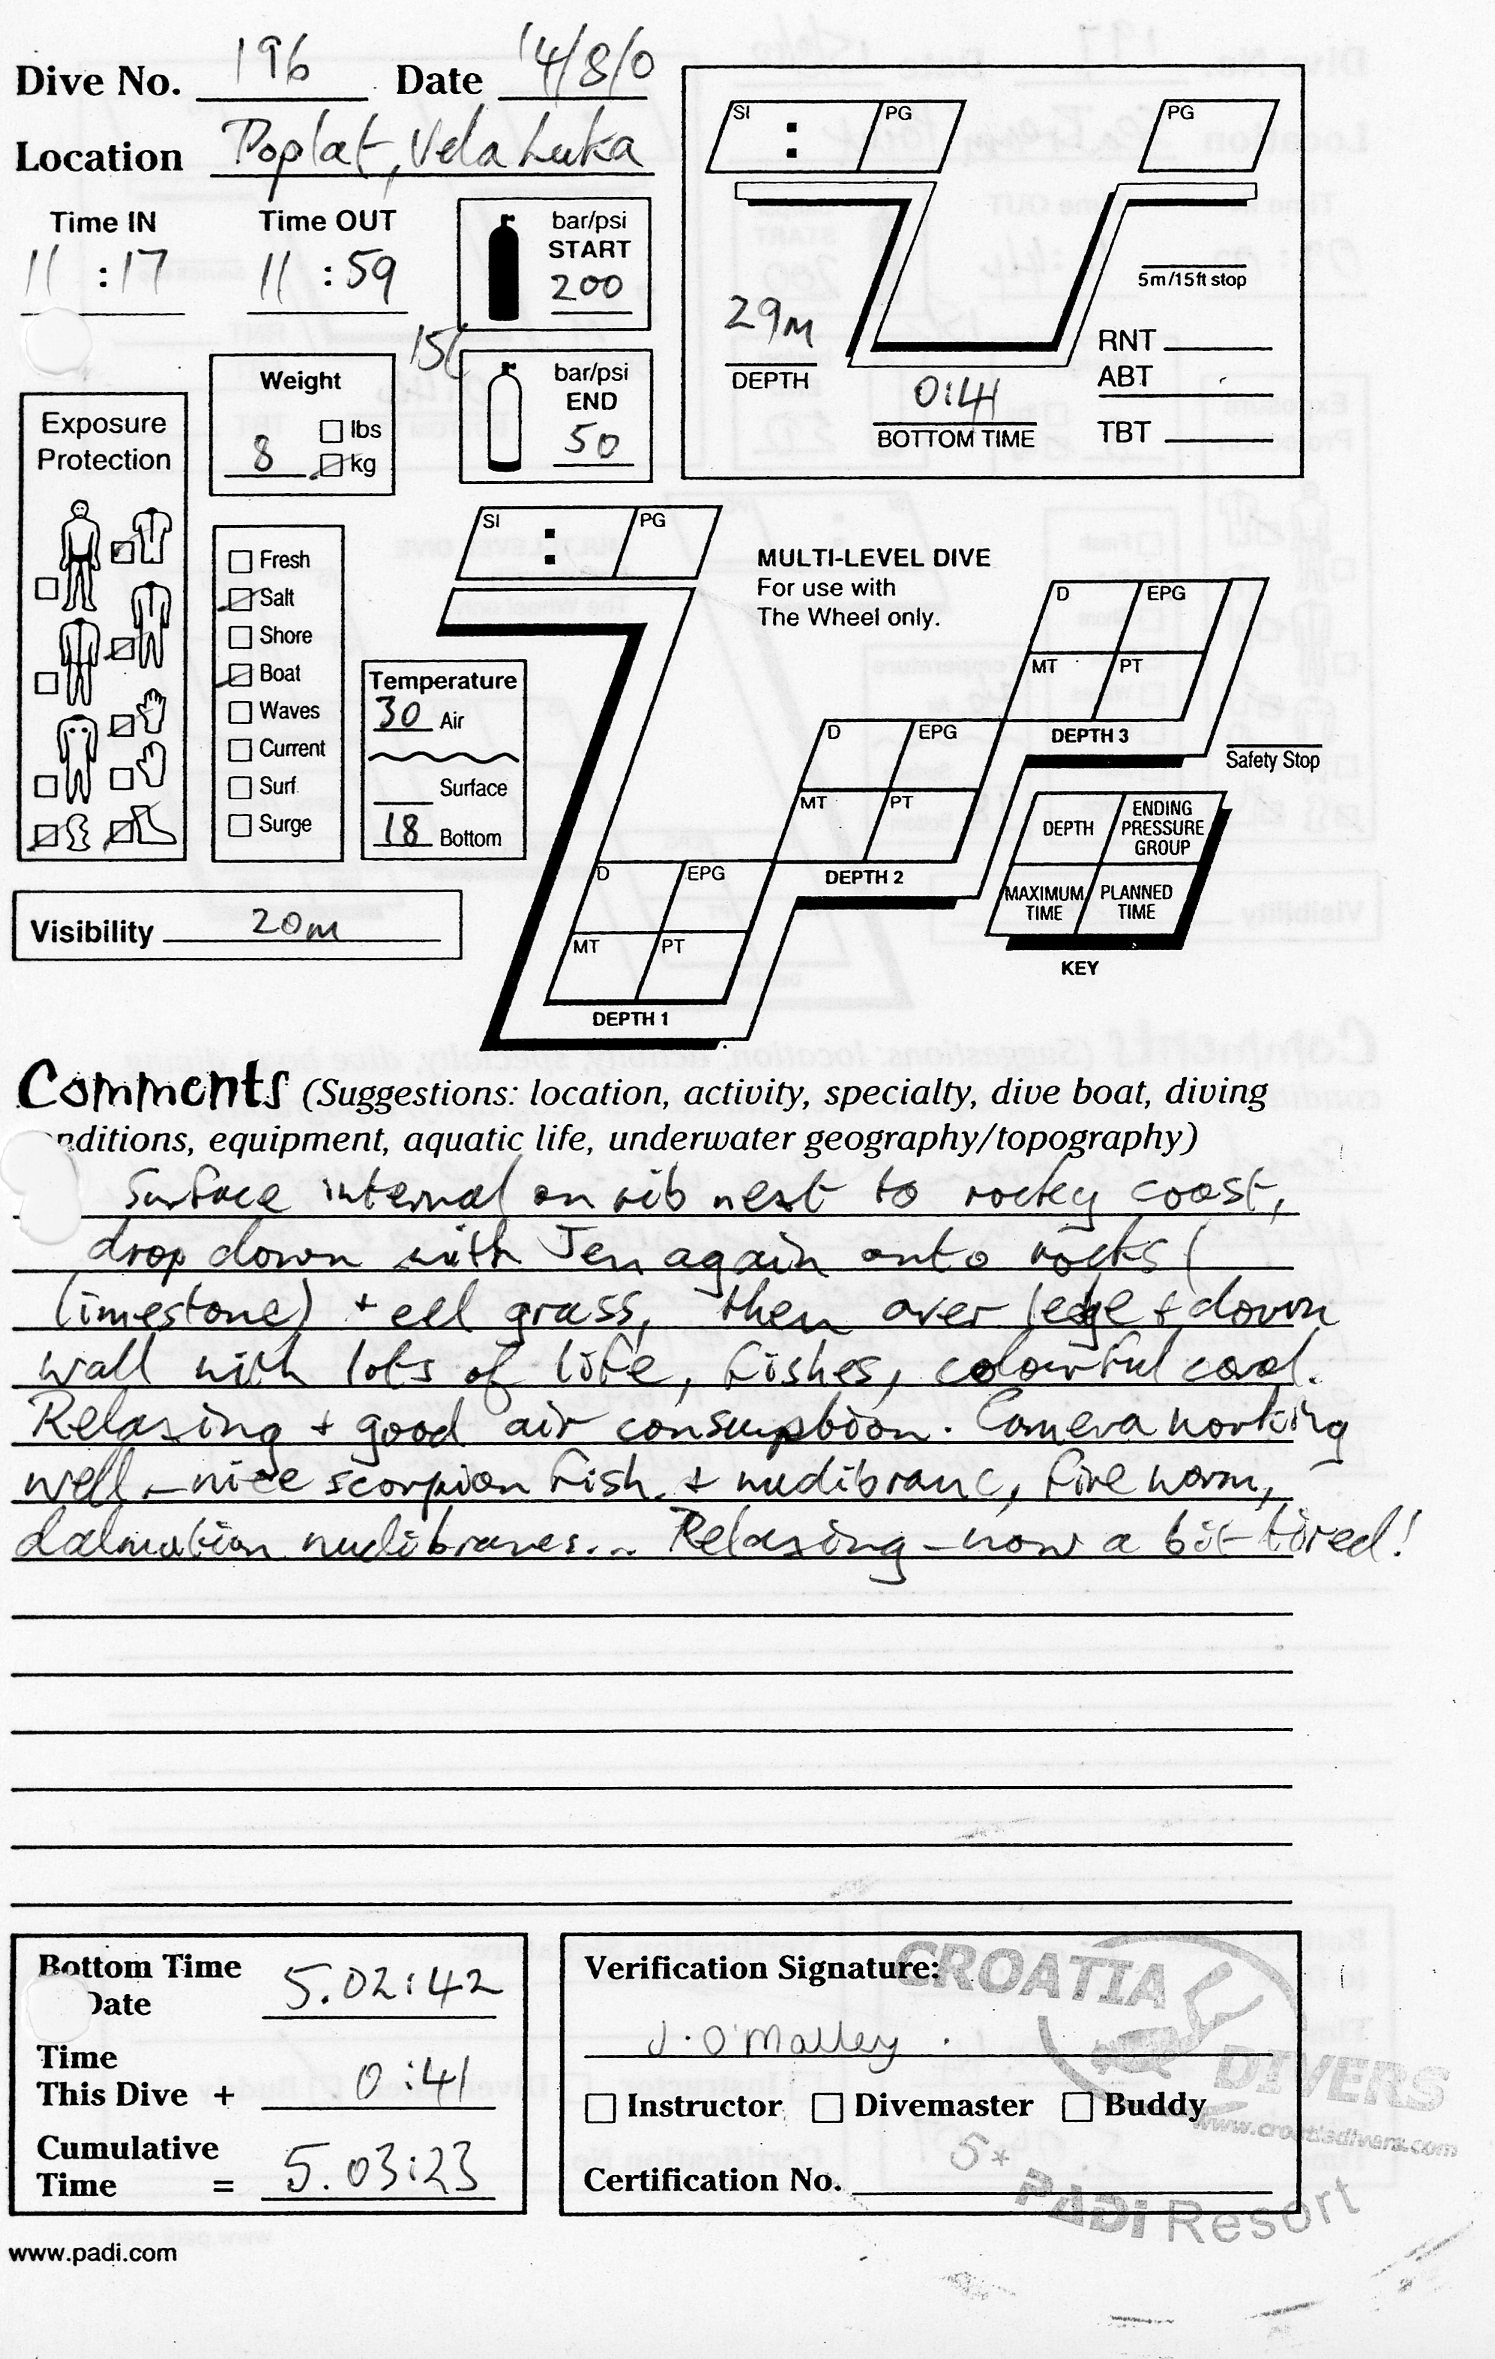 Dive No. 196 Date 14/8/0
Location Poplat, Vela Luka
Time IN Time OUT
11 : 17 11 : 59
bar/psi
START
200
15L
bar/psi
END
50
Weight
8 lbs
kg
Exposure
Protection
Fresh
Salt
Shore
Boat
Waves
Current
Surf
Surge
Temperature
30 Air
Surface
18 Bottom
Visibility 20m
SI : PG
PG
29m
DEPTH
0:41
BOTTOM TIME
5m/15ft stop
RNT
ABT
TBT
SI : PG
MULTI-LEVEL DIVE
For use with
The Wheel only.
D EPG
MT PT
DEPTH 1
D EPG
MT PT
DEPTH 2
D EPG
MT PT
DEPTH 3
Safety Stop
DEPTH ENDING PRESSURE GROUP
MAXIMUM TIME PLANNED TIME
KEY
Comments (Suggestions: location, activity, specialty, dive boat, diving
nditions, equipment, aquatic life, underwater geography/topography)
Surface internal on rib next to rocky coast,
drop down with Jen again onto rocks (
limestone) + eel grass, then over ledge + down
wall with lots of life, fishes, colourful coral.
Relaxing + good air consumption. Camera working
well - nice scorpion fish + nudibranc, fire worm,
dalmatian nudibranes... Relaxing - now a bit tired!
Bottom Time
Date 5.02:42
Time
This Dive + 0:41
Cumulative
Time = 5.03:23
Verification Signature:
J. O'Malley
Instructor Divemaster Buddy
Certification No.
CROATIA
DIVERS
www.croatiadivers.com
5*
PADI Resort
www.padi.com